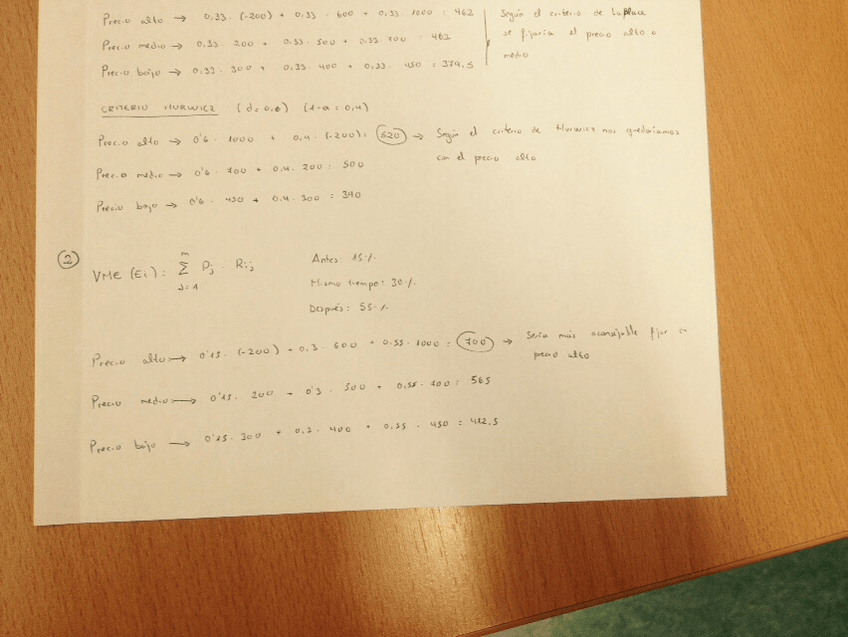 Precio alto → 0,33 · (-200) + 0,33 · 600 + 0,33 · 1000 = 462
Precio medio → 0,33 · 200 + 0,33 · 500 + 0,33 · 700 = 462
Precio bajo → 0,33 · 300 + 0,33 · 400 + 0,33 · 450 = 379,5
Según el criterio de Laplace
se fijaría el precio alto o
medio
CRITERIO HURWICZ (α = 0,6) (1-α = 0,4)
Precio alto → 0'6 · 1000 + 0,4 · (-200) = 520 → Según el criterio de Hurwicz nos quedaríamos
con el precio alto
Precio medio → 0'6 · 700 + 0,4 · 200 = 500
Precio bajo → 0'6 · 450 + 0,4 · 300 = 390
2
VME (Ei) = Σ Pj · Rij
m
J=1
Antes: 15%
Mismo tiempo: 30%
Después: 55%
Precio alto → 0'15 · (-200) + 0,3 · 600 + 0,55 · 1000 = 700 → Sería más aconsejable fijar un
precio alto
Precio medio → 0'15 · 200 + 0'3 · 500 + 0,55 · 700 = 565
Precio bajo → 0'15 · 300 + 0,3 · 400 + 0,55 · 450 = 412,5